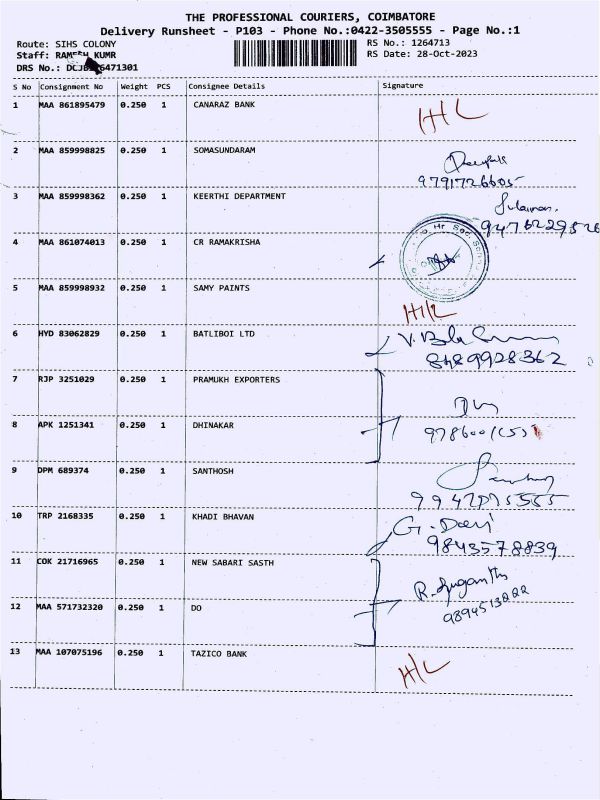 THE PROFESSIONAL COURIERS, COIMBATORE
Delivery Runsheet - P103 - Phone No.:0422-3505555 - Page No.:1
Route: SIHS COLONY RS No.: 1264713
Staff: RAMESH KUMR RS Date: 28-Oct-2023
DRS No.: 6471301
S No Consignment No Weight PCS Consignee Details Signature
1 MAA 861895479 0.250 1 CANARAZ BANK H/L
2 MAA 859998825 0.250 1 SOMASUNDARAM
9791726605
3 MAA 859998362 0.250 1 KEERTHI DEPARTMENT Sulaiman.
9476229526
Hr Sec
4 MAA 861074013 0.250 1 CR RAMAKRISHA
5 MAA 859998932 0.250 1 SAMY PAINTS H/L
6 HYD 83062829 0.250 1 BATLIBOI LTD V. Bala
8489928362
7 RJP 3251029 0.250 1 PRAMUKH EXPORTERS
8 APK 1251341 0.250 1 DHINAKAR
9 DPM 689374 0.250 1 SANTHOSH
10 TRP 2168335 0.250 1 KHADI BHAVAN G. Devi
9843578839
11 COK 21716965 0.250 1 NEW SABARI SASTH R. Suganthi
12 MAA 571732320 0.250 1 DO
13 MAA 107075196 0.250 1 TAZICO BANK H/L